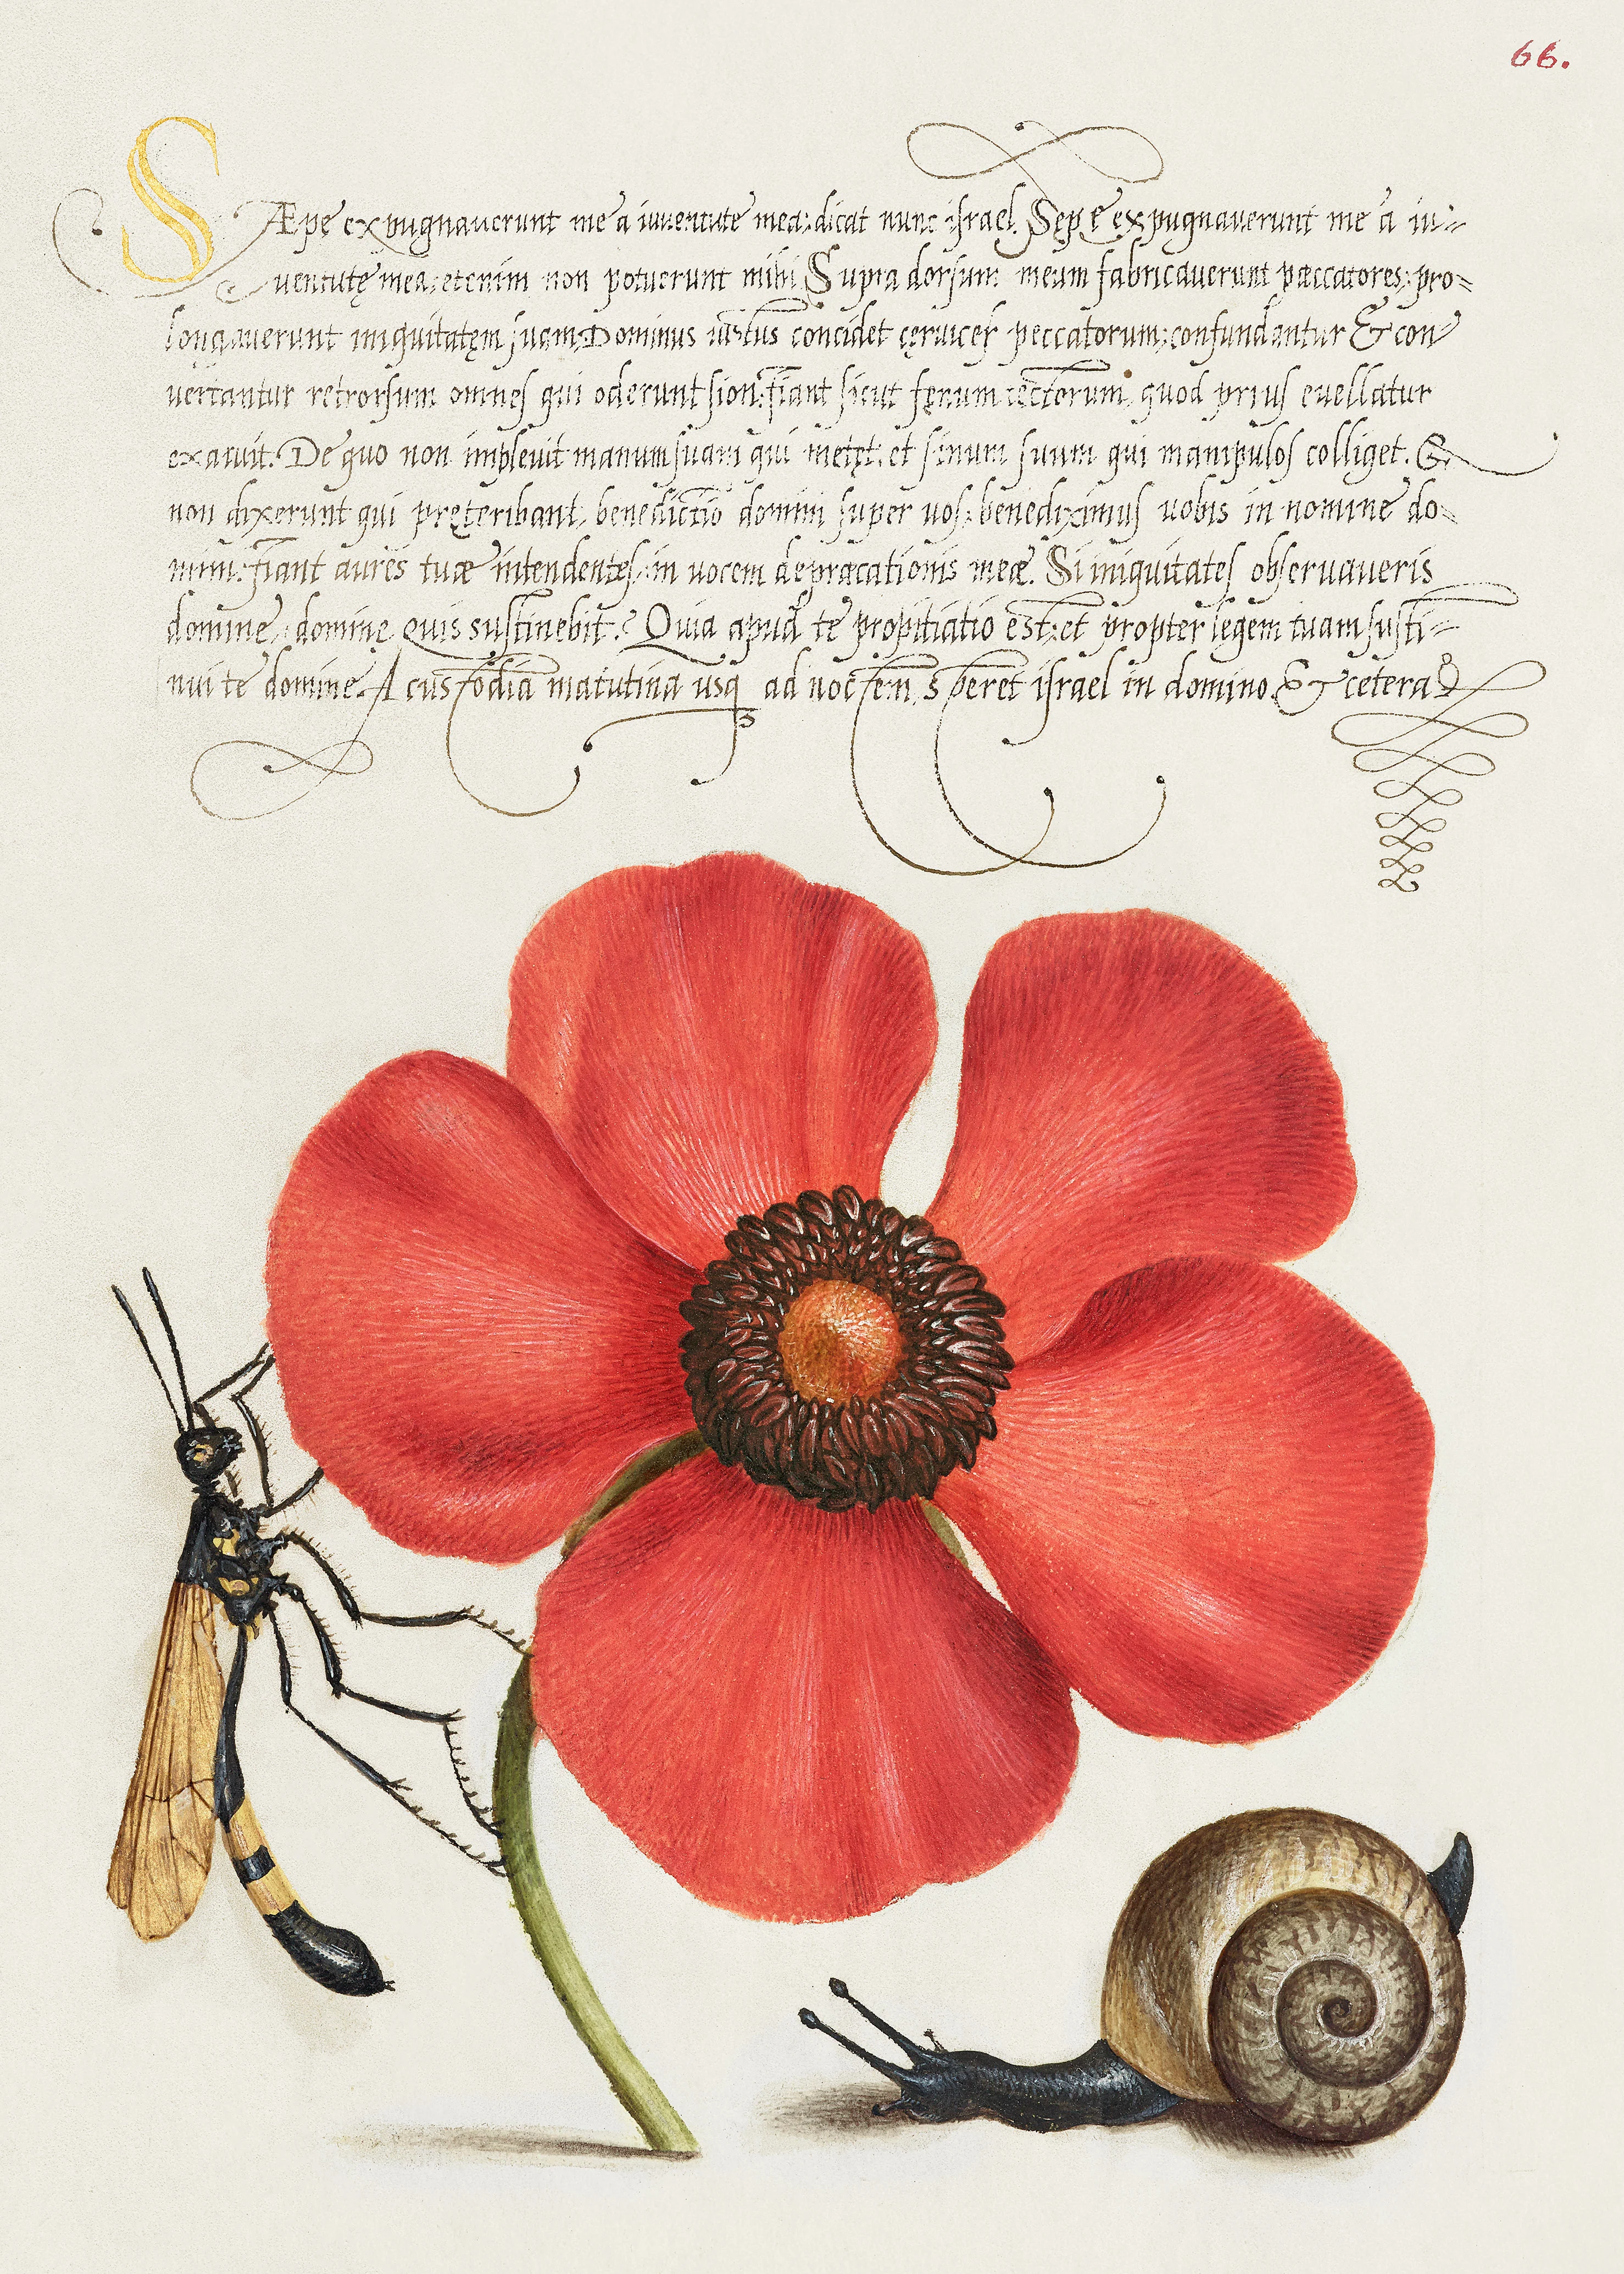 66.
SÆpe expugnauerunt me a iuuentute mea: dicat nunc israel. Sępe expugnauerunt me a iu-
uentutę mea: etenim non potuerunt mihi. Supra dorsum meum fabricauerunt pæccatores: pro-
longauerunt iniquitatęm suam. Dominus iustus concidet cęruices peccatorum: confundantur & con
uertantur retrorsum omnes qui oderunt sion. fiant sicut fęnum tectorum, quod prius euellatur
exaruit. De quo non impleuit manum suam qui metęt: et sinum suum qui manipulos colliget. &
non dixerunt qui pręteribant, benedictio domini super uos: benediximus uobis in nomine do-
mini. fiant aures tuæ intendentes: in uocem depræcationis meæ. Si iniquitates obseruaueris
domine, dominę quis sustinebit? Quia apud te propitiatio est: et propter legem tuam susti-
nui te domine. A custodia matutina usq ad noctem, speret israel in domino. & cetera